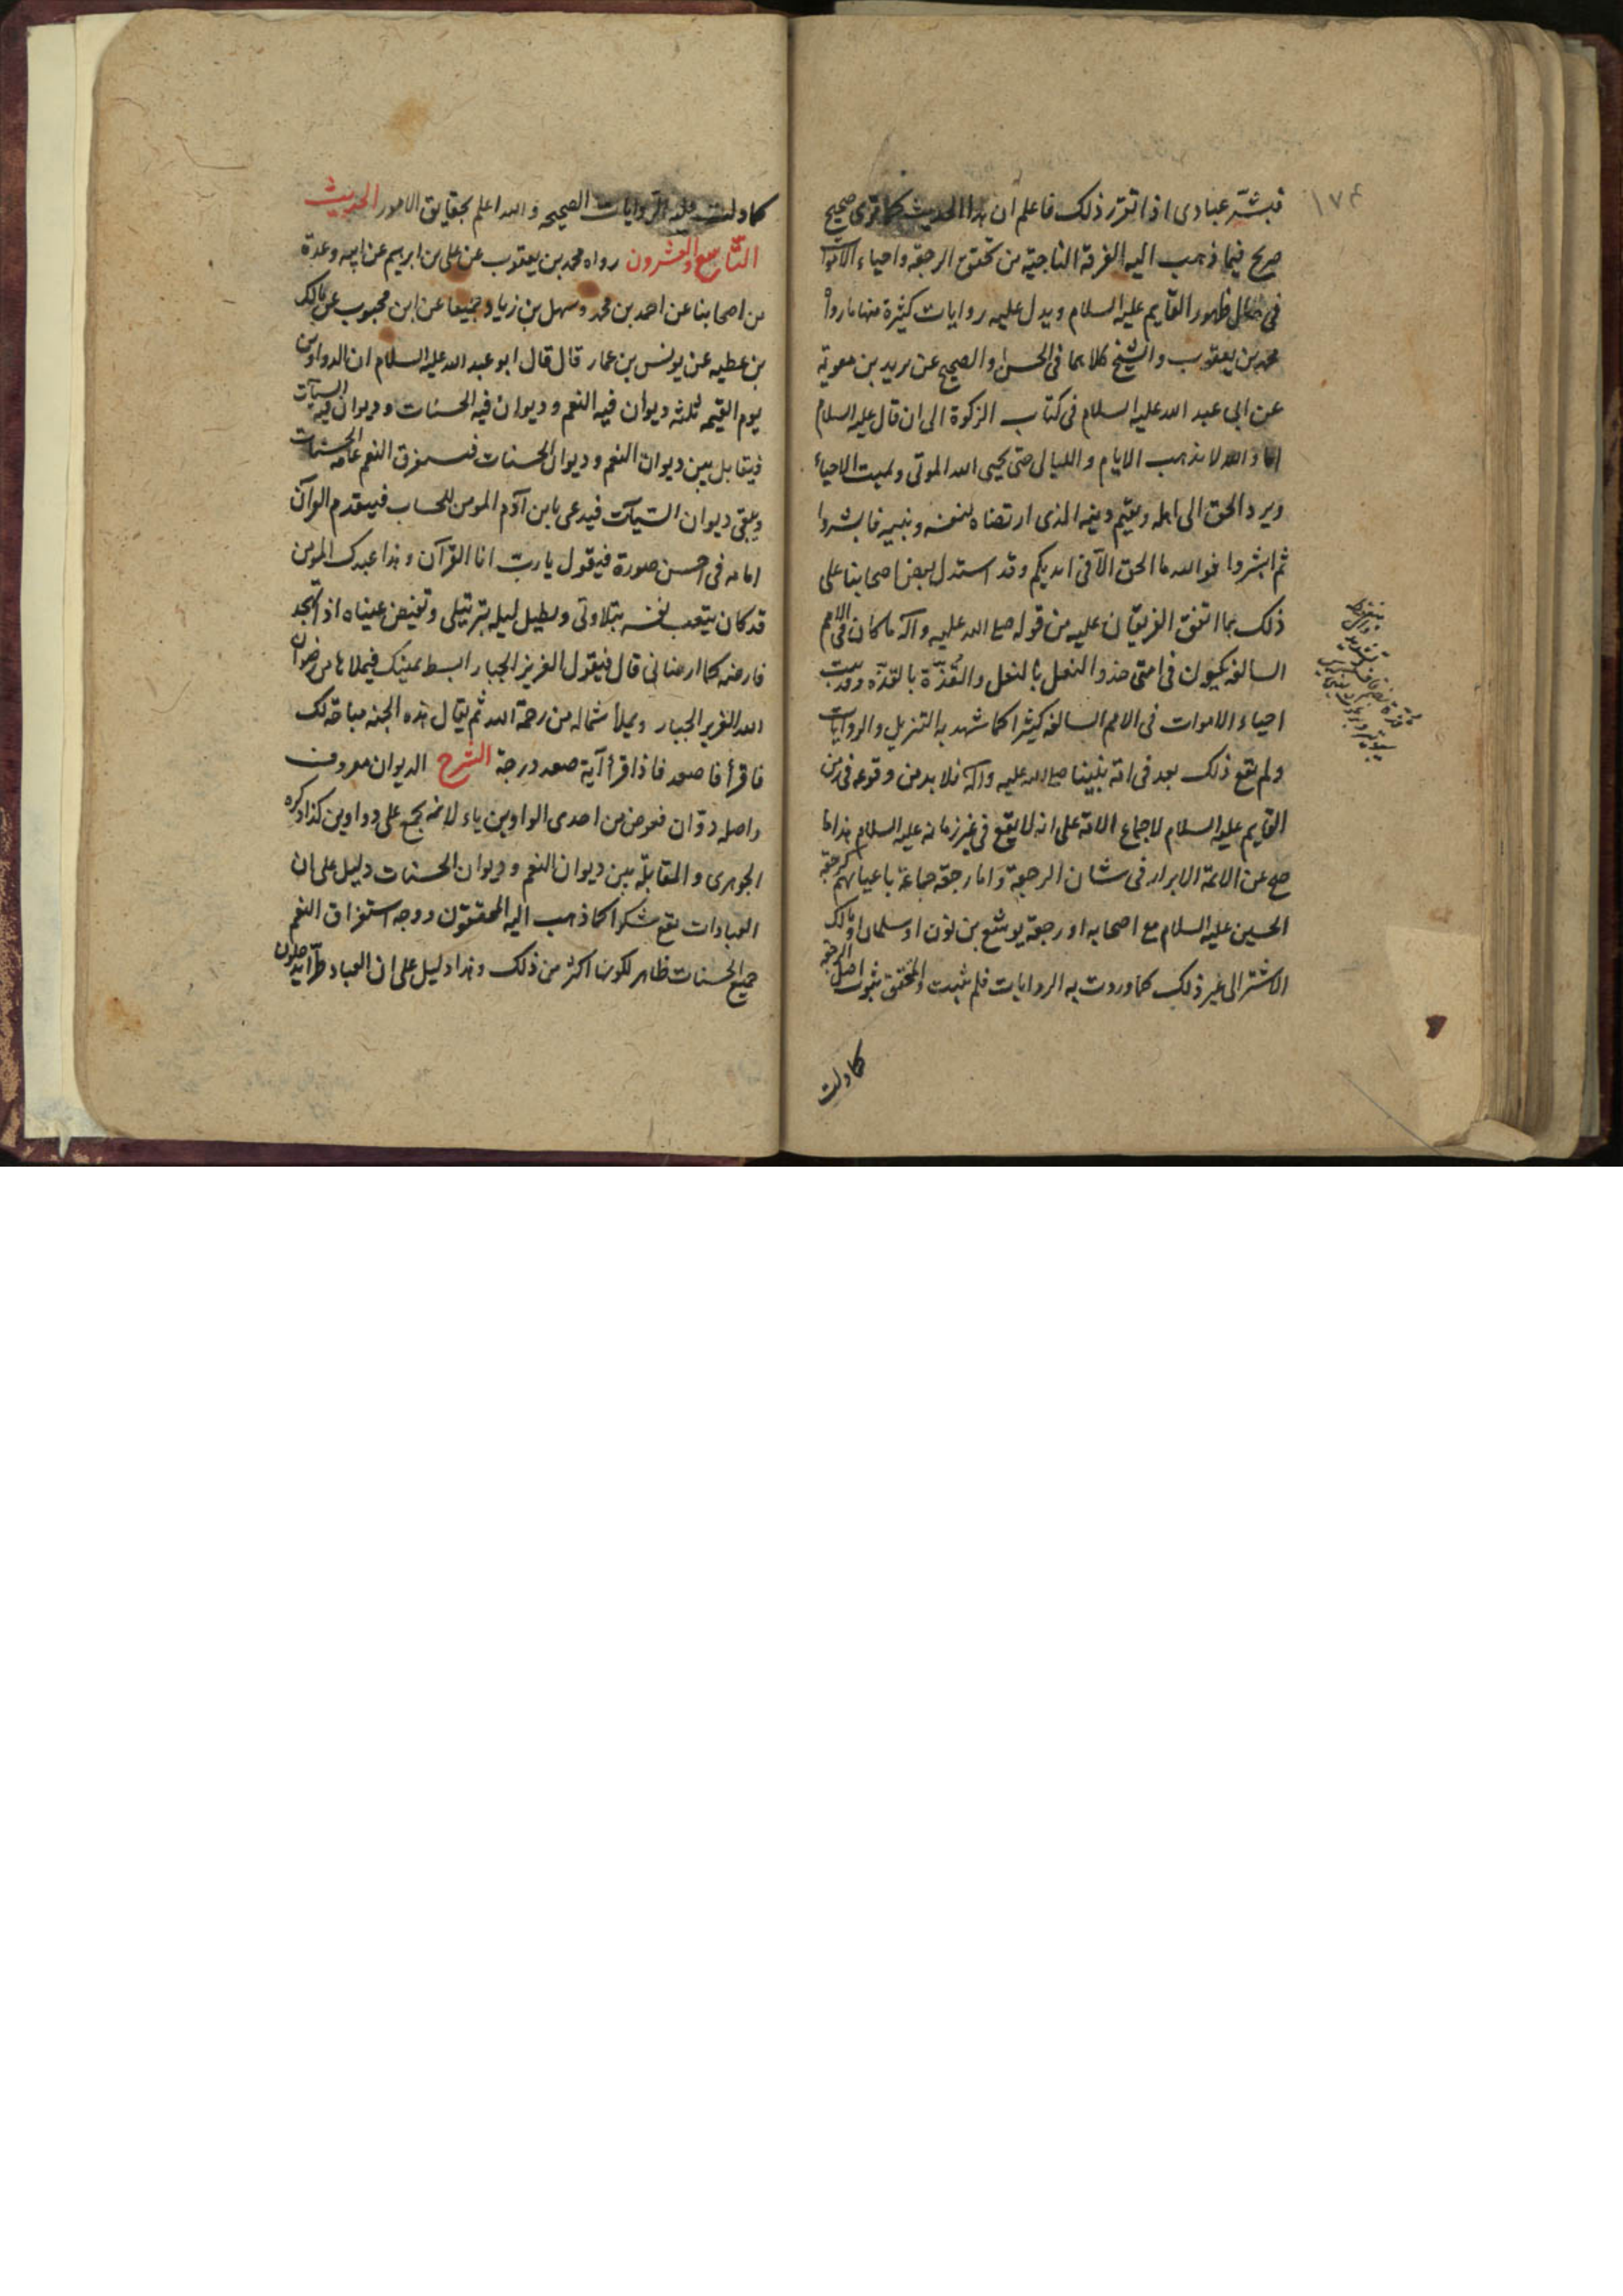 ١٧٤
فبشر عبادى اذا تقرر ذلك فاعلم ان هذا الحديث كما ترى صحيح
صريح فيما ذهب اليه الفرقة الناجية من تحقق الرجعة واحياء الاموات
فى حال ظهور القايم عليه السلام ويدل عليه روايات كثيرة منها ما رواه
محمد بن يعقوب والشيخ كلاهما فى الحسن او الصحيح عن بريد بن معوية
عن ابى عبد الله عليه السلام فى كتاب الزكوة الى ان قال عليه السلام
اما والله لا يذهب الايام والليالى حتى يحيى الله الموتى ويميت الاحياء
ويرد الحق الى اهله ويقيم دينه الذى ارتضاه لنفسه ونبيه فابشروا
ثم ابشروا فوالله ما الحق الا فى ايديكم وقد استدل بعض اصحابنا على
ذلك بما اتفق الفريقان عليه من قوله صلى الله عليه وآله ما كان فى الامم
السالفه يكون فى امتى حذو النعل بالنعل والقذة بالقذة وقد ثبت
احياء الاموات فى الامم السالفه كثيرا كما شهد به التنزيل والروايات
ولم يقع ذلك بعد فى امة نبينا صلى الله عليه وآله فلا بد من وقوعه فى زمن
القايم عليه السلام لاجماع الامة على انه لا يقع فى غير زمانه عليه السلام هذا ما
صح عن الائمة الابرار فى شان الرجعة واما رجعة جماعة باعيانهم كرجعة
الحسين عليه السلام مع اصحابه او رجعة يوشع بن نون او سلمان او مالك
الاشتر الى غير ذلك كما وردت به الروايات فلم يثبت والمحقق ثبوت اصل الرجعة
كما دلت
كما دلت عليه الروايات الصحيحه والله اعلم بحقايق الامور الحديث
التاسع والعشرون رواه محمد بن يعقوب عن على بن ابريهم عن ابيه وعدة
من اصحابنا عن احمد بن محمد وسهل بن زياد جميعا عن ابن محبوب عن مالك
بن عطيه عن يونس بن عمار قال قال ابو عبد الله عليه السلام ان الدواوين
يوم القيمه ثلثه ديوان فيه النعم وديوان فيه الحسنات وديوان فيه السيآت
فيقابل بين ديوان النعم وديوان الحسنات فيستغرق النعم عامه الحسنات
ويبقى ديوان السيآت فيدعى بابن آدم المومن للحساب فيتقدم القرآن
امامه فى احسن صورة فيقول يا رب انا القرآن وهذا عبدك المومن
قد كان يتعب نفسه بتلاوتى ويطيل ليله بترتيلى وتفيض عيناه اذا تهجد
فارضه كما ارضانى قال فيقول العزيز الجبار ابسط يمينك فيملاها من رضوان
الله العزيز الجبار ويملأ شماله من رحمة الله ثم يقال هذه الجنه مباحة لك
فاقرأ فاصعد فاذا قرأ آية صعد درجة الشرح الديوان معروف
واصله دوّان فعوض من احدى الواوين ياء لانه يجمع على دواوين كذا ذكره
الجوهرى والمقابلة بين ديوان النعم وديوان الحسنات دليل على ان
العبادات تقع شكرا كما ذهب اليه المحققون ووجه استغراق النعم
جميع الحسنات ظاهر لكونها اكثر من ذلك وهذا دليل على ان العباد طرا